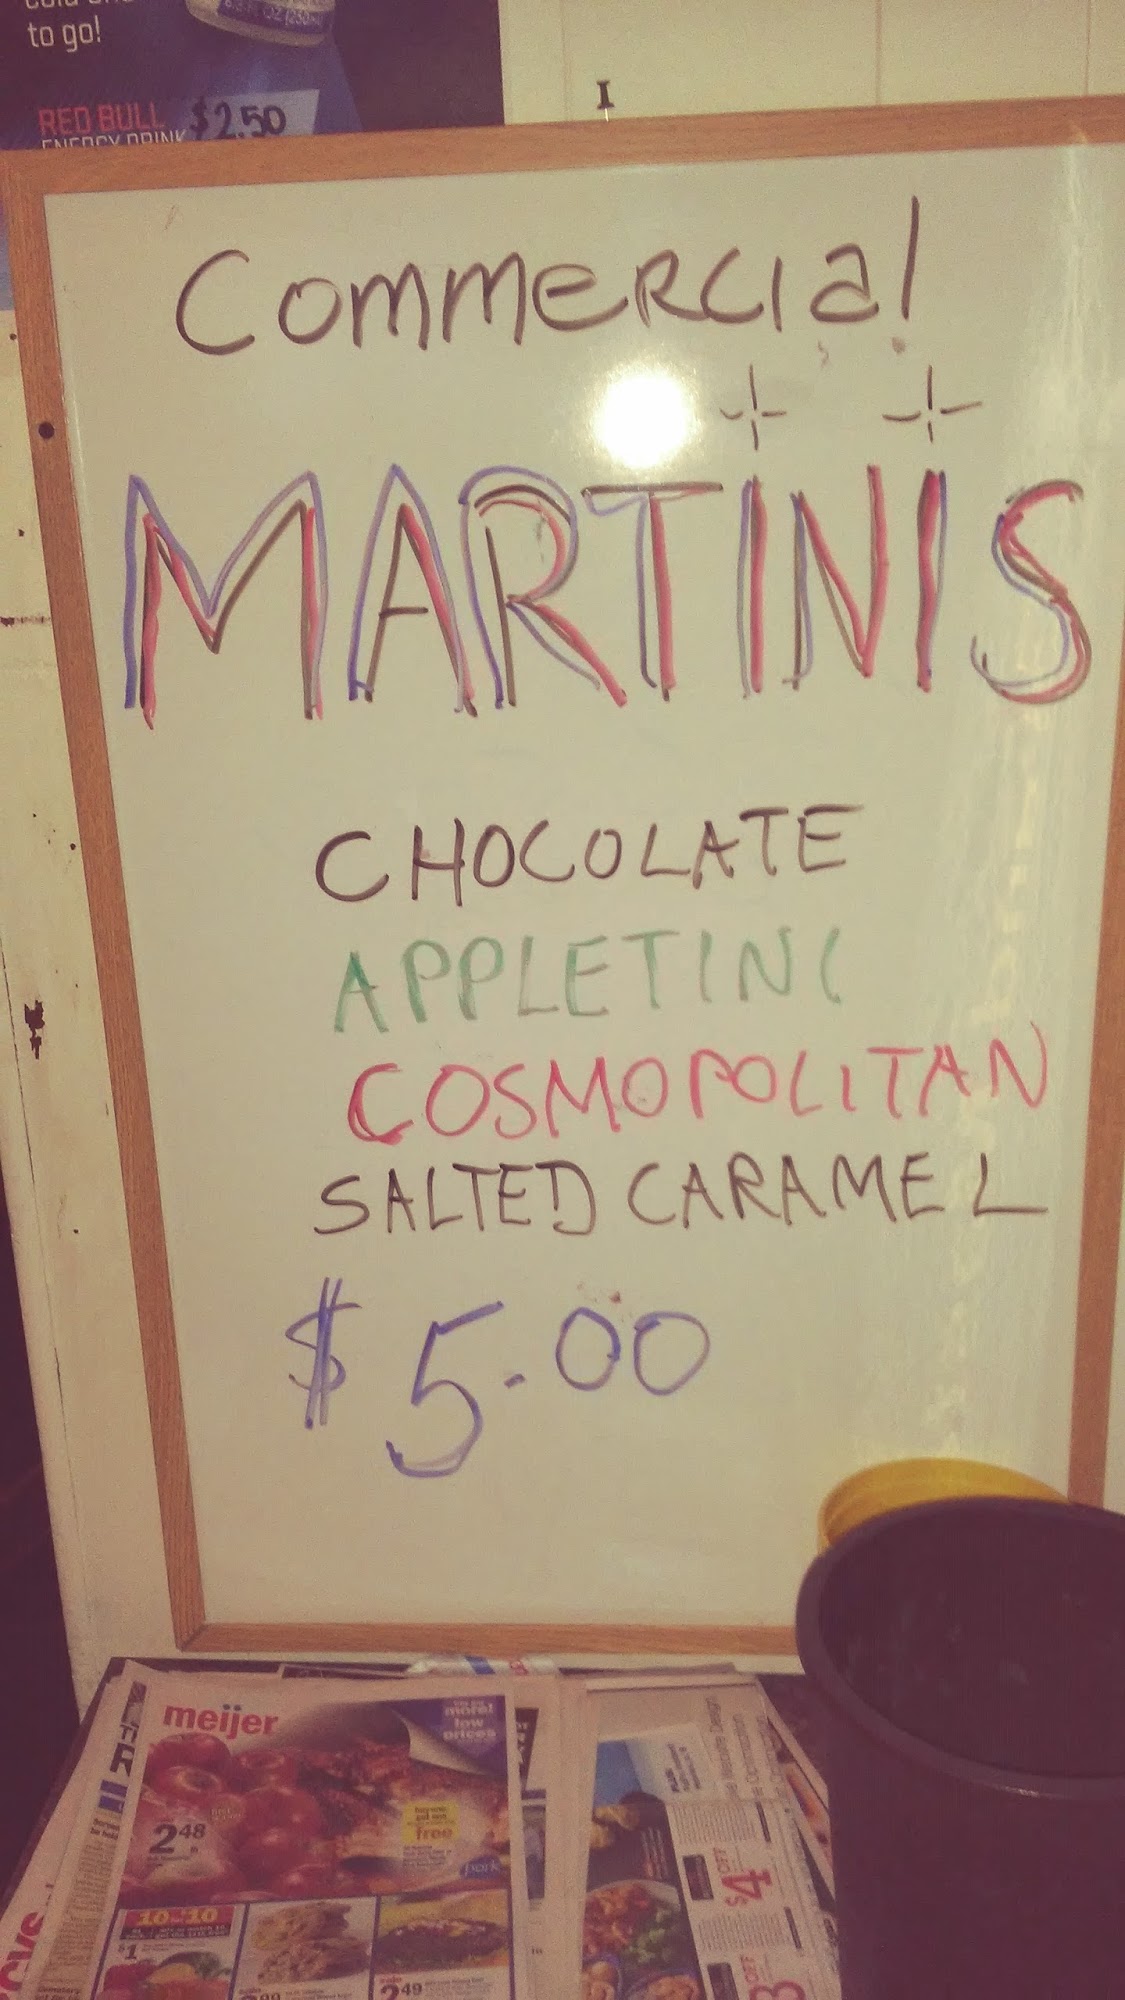 to go!
RED BULL $2.50
ENERGY DRINK
I
Commercial
MARTINIS
CHOCOLATE
APPLETINI
COSMOPOLITAN
SALTED CARAMEL
$5.00
meijer
more!
low
prices
2.48
free
pork
10 for 10
$1
2.49
CVS
$4 OFF
OFF